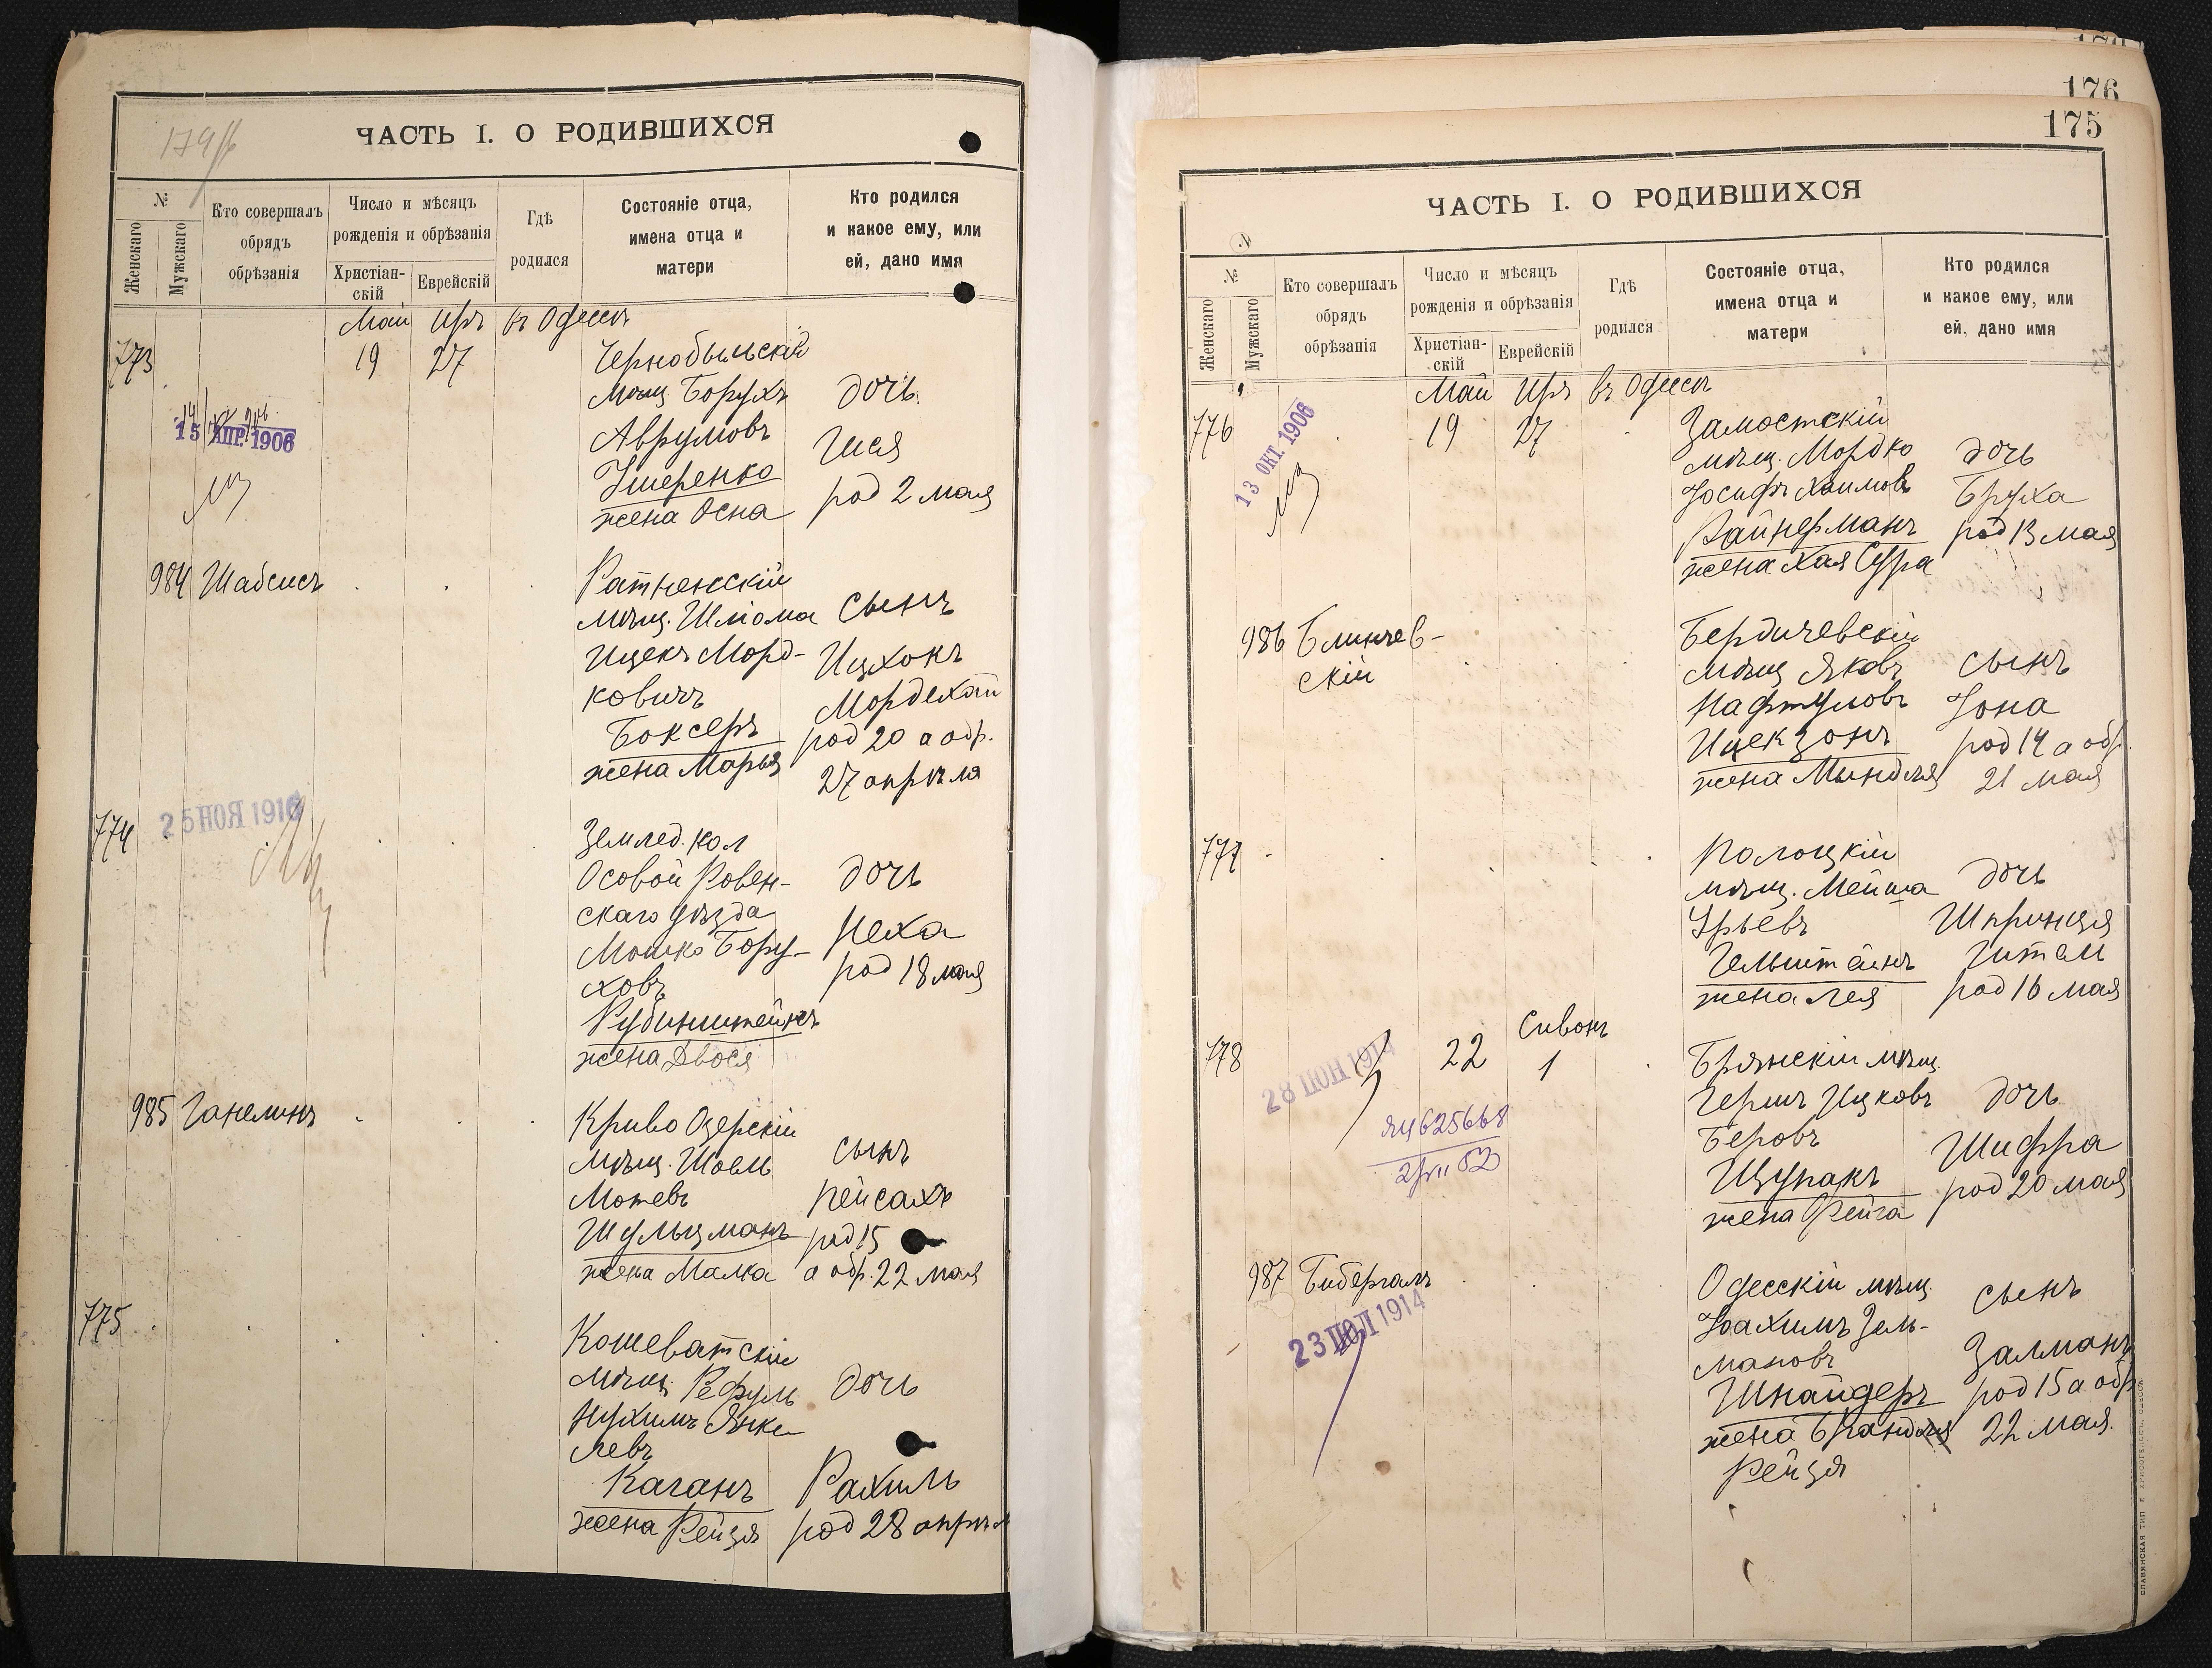 ЧАСТЬ I. О РОДИВШИХСЯ
№
Женскаго
Мужскаго
Кто совершалъ
обрядъ
обрѣзанія
Число и мѣсяцъ
рожденія и обрѣзанія
Христіан-
скій
Еврейскій
Гдѣ
родился
Состояніе отца,
имена отца и
матери
Кто родился
и какое ему, или
ей, дано имя
Май Иръ въ Одессѣ
773 19 27
Чернобыльскій
мѣщ. Борухъ
Аврумовъ
жена Осна
дочь
Гися
род 2 мая
15 АПР. 1906
984 Шабсисъ
Ратненскій
мѣщ. Шліома
Ицекъ Морд-
ковичъ
Боксеръ
жена Марья
сынъ
Ицхокъ
Мордехай
род 20 а обр.
27 апрѣля
774
25 НОЯ 1916
Землед. кол
Осовой Ровен-
скаго уѣзда
Мошко Бору-
ховъ
Рубинштейнъ
жена Двося
дочь
Неха
род 18 мая
985 Ганелинъ
Криво Озерскій
мѣщ. Шоель
Мотевъ
Шульцманъ
жена Малка
сынъ
Пейсахъ
род 15
а обр. 22 мая
775
Кошеватскій
мѣщ. Рефуль
Нухимъ Янке
левъ
Каганъ
жена Рейзя
дочь
Рахиль
род 28 апрѣл
176
175
ЧАСТЬ I. О РОДИВШИХСЯ
№
Женскаго
Мужскаго
Кто совершалъ
обрядъ
обрѣзанія
Число и мѣсяцъ
рожденія и обрѣзанія
Христіан-
скій
Еврейскій
Гдѣ
родился
Состояніе отца,
имена отца и
матери
Кто родился
и какое ему, или
ей, дано имя
Май Иръ въ Одессѣ
776 19 27
13 ОКТ. 1906
Замостскій
мѣщ. Мордко
Іосифъ Хаимовъ
Файнерманъ
жена Хая Сура
дочь
Бруха
род 13 мая
986 Блинчев-
скій
Бердичевскій
мѣщ Яковъ
Нафтуловъ
Ицекзонъ
жена Мындля
сынъ
Іона
род 14 а обр.
21 мая
777
Полоцкій
мѣщ. Мейша
Урьевъ
Гельштейнъ
жена Лея
дочь
Шпринця
Гитель
род 16 мая
Сивонъ
778 22 1
28 ІЮН 1914
Брянскій мѣщ.
Гершъ Ицковъ
Беровъ
Щупакъ
жена Фейга
дочь
Шифра
род 20 мая
987 Бибергалъ
23 ІЮЛ 1914
Одесскій мѣщ.
Іоахимъ Зель-
мановъ
Шнайдеръ
жена Брандля
Рейзя
сынъ
Залманъ
род 15 а обр
22 мая.